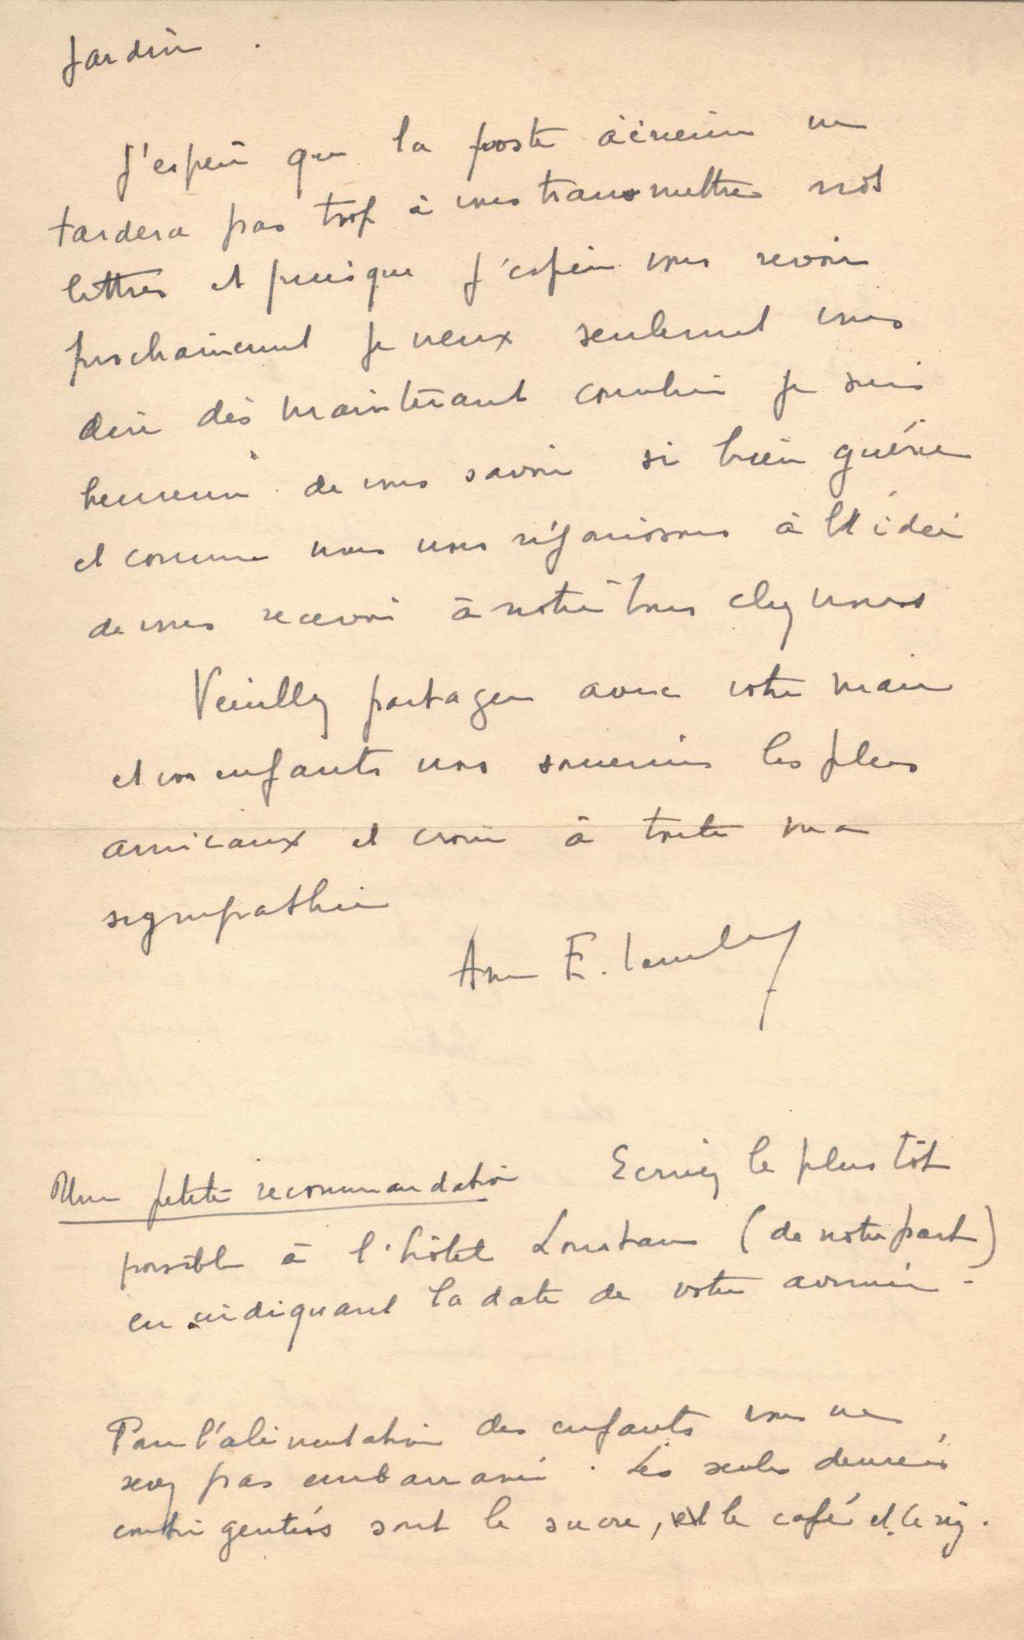 jardin.
J'espère que la poste aérienne ne
tardera pas trop à vous transmettre nos
lettres et puisque j'espère vous revoir
prochainement je veux seulement vous
dire dès maintenant combien je suis
heureuse de vous savoir si bien guérie
et comme nous nous réjouissons à l'idée
de vous recevoir à notre tour chez nous
Veuillez partager avec votre mari
et vos enfants nos souvenirs les plus
amicaux et croire à toute ma
sympathie
E.
Une petite recommandation Ecrivez le plus tôt
possible à l'hôtel Loustau (de notre part)
en indiquant la date de votre arrivée -
Pour l'alimentation des enfants vous ne
serez pas embarrassée. Les seules denrées
contingentées sont le sucre, le café et le riz.